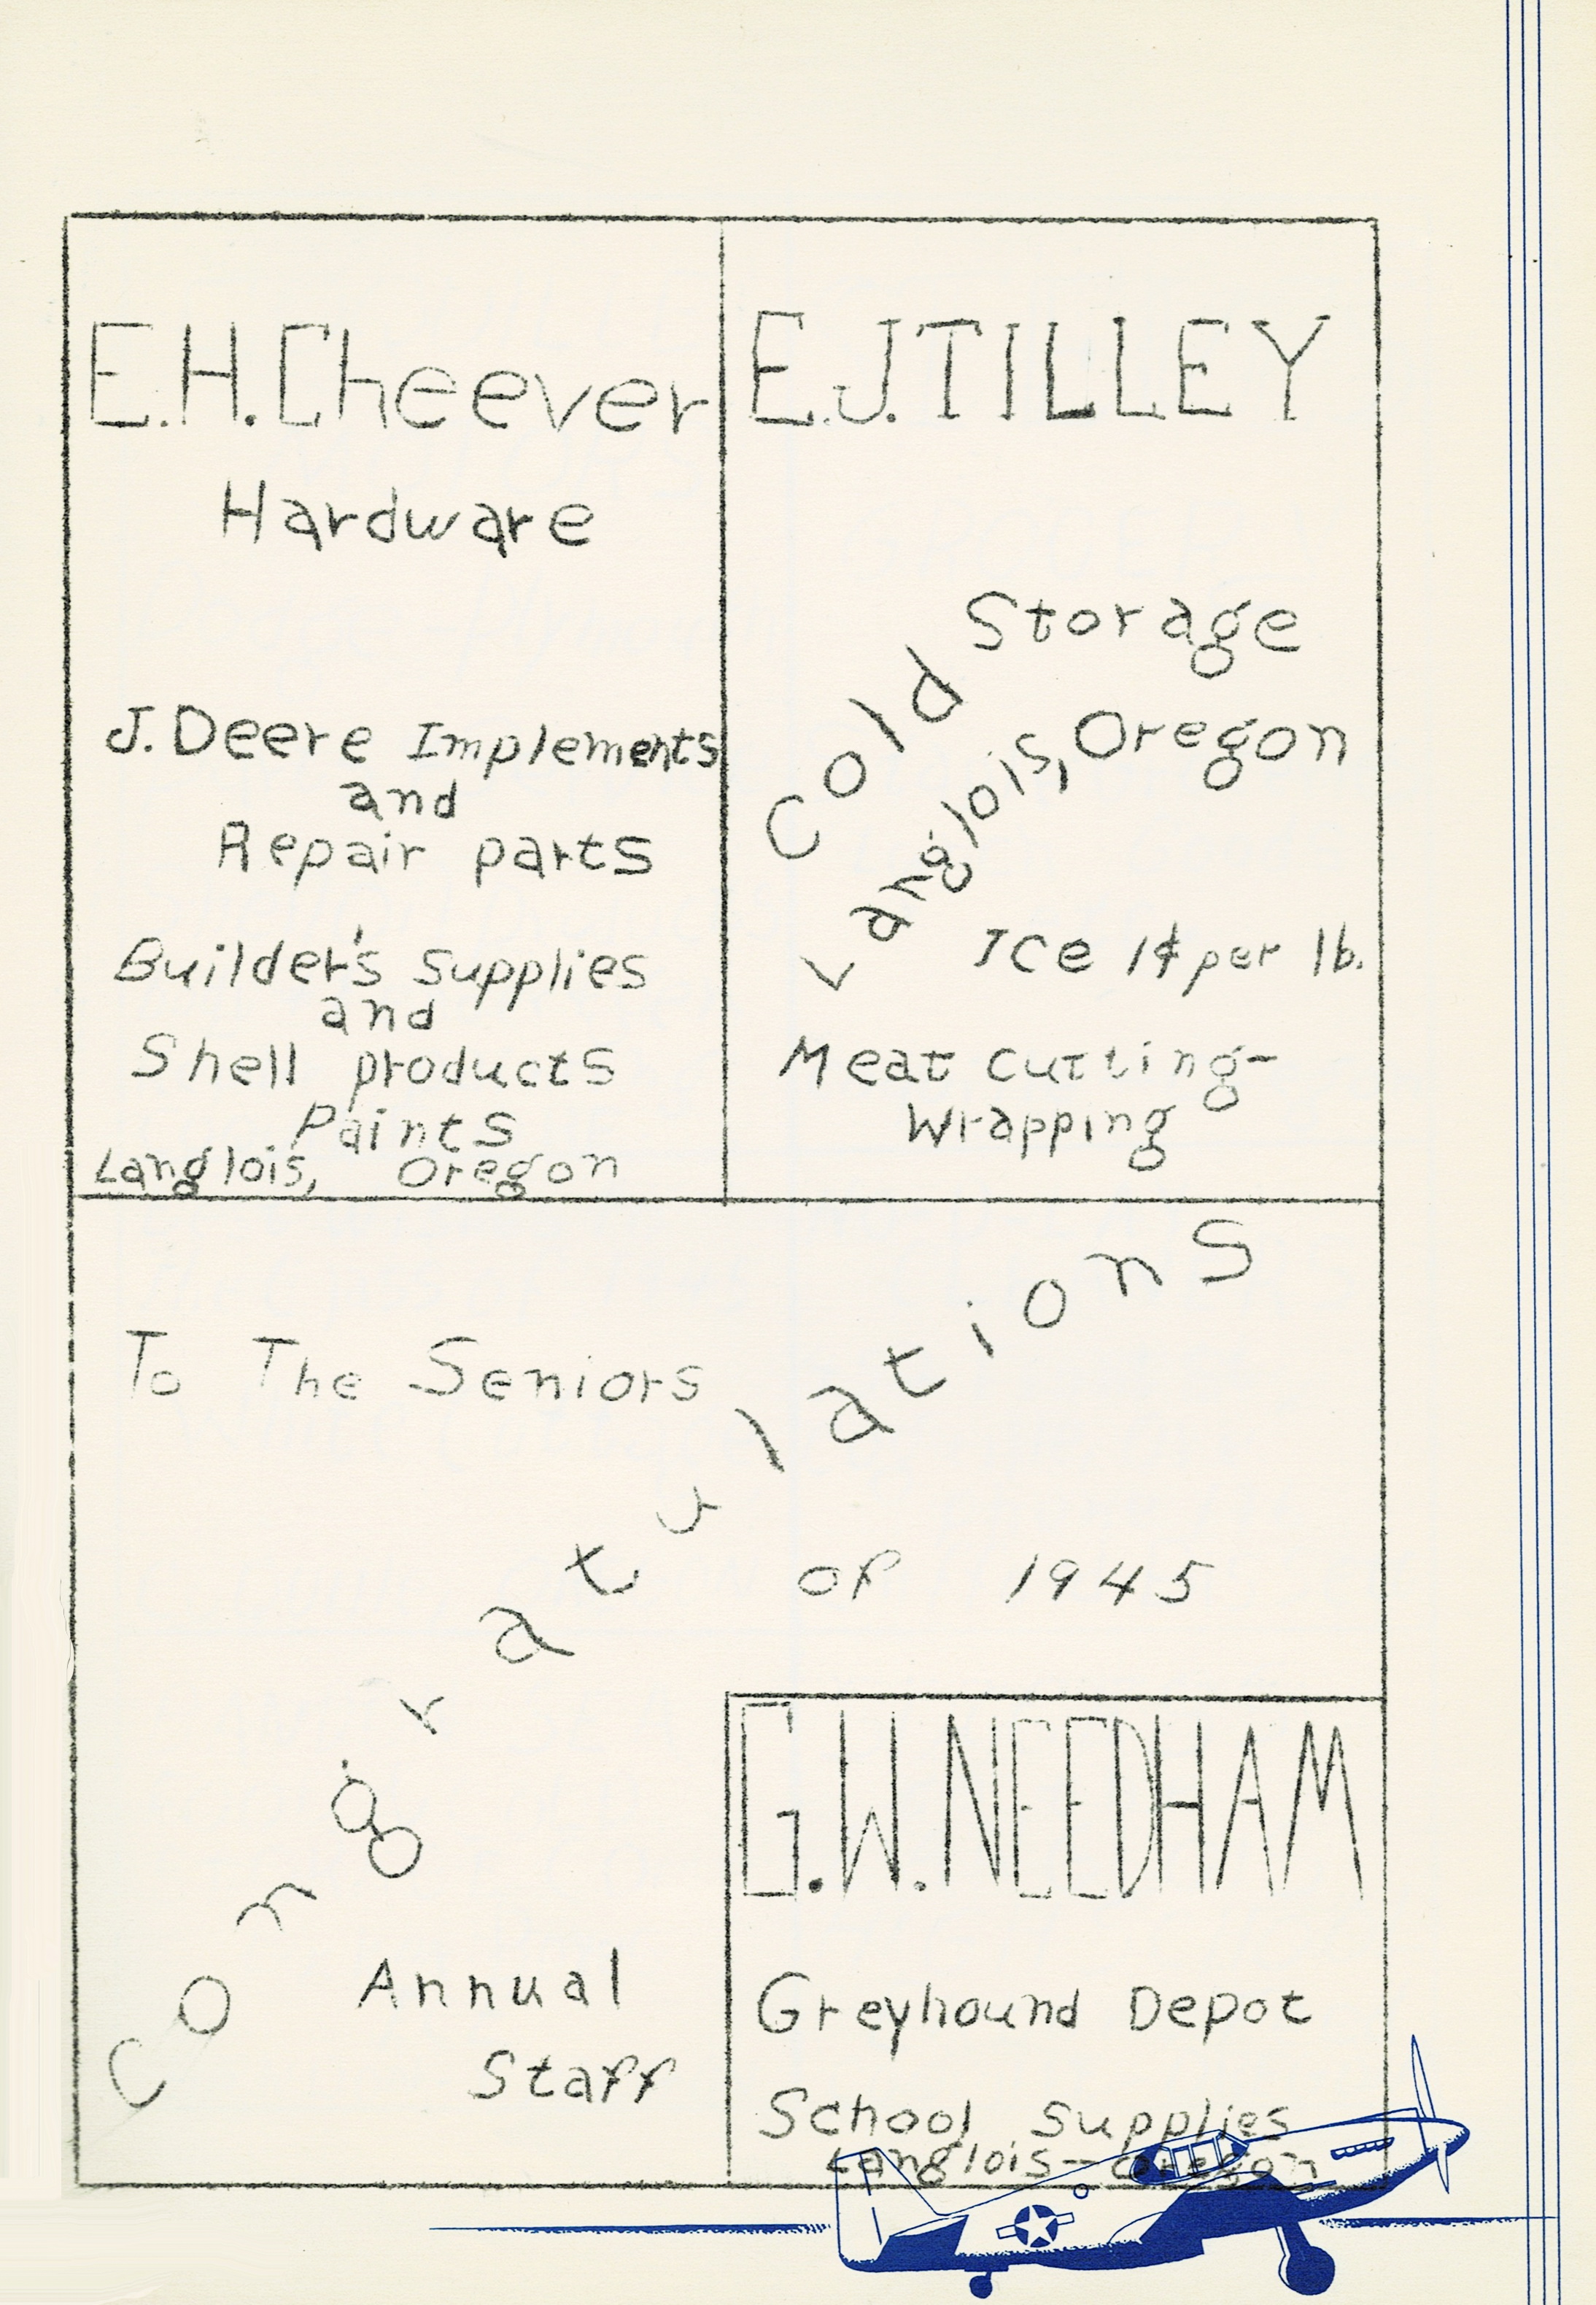 E.H. Cheever
Hardware
J. Deere Implements
and
Repair parts
Builder's supplies
and
Shell products
Paints
Langlois, Oregon
E.J. TILLEY
Cold Storage
Langlois, Oregon
Ice 1¢ per lb.
Meat cutting-
Wrapping
Congratulations
To The Seniors
of 1945
Annual
Staff
G.W. NEEDHAM
Greyhound Depot
School Supplies
Langlois-Oregon